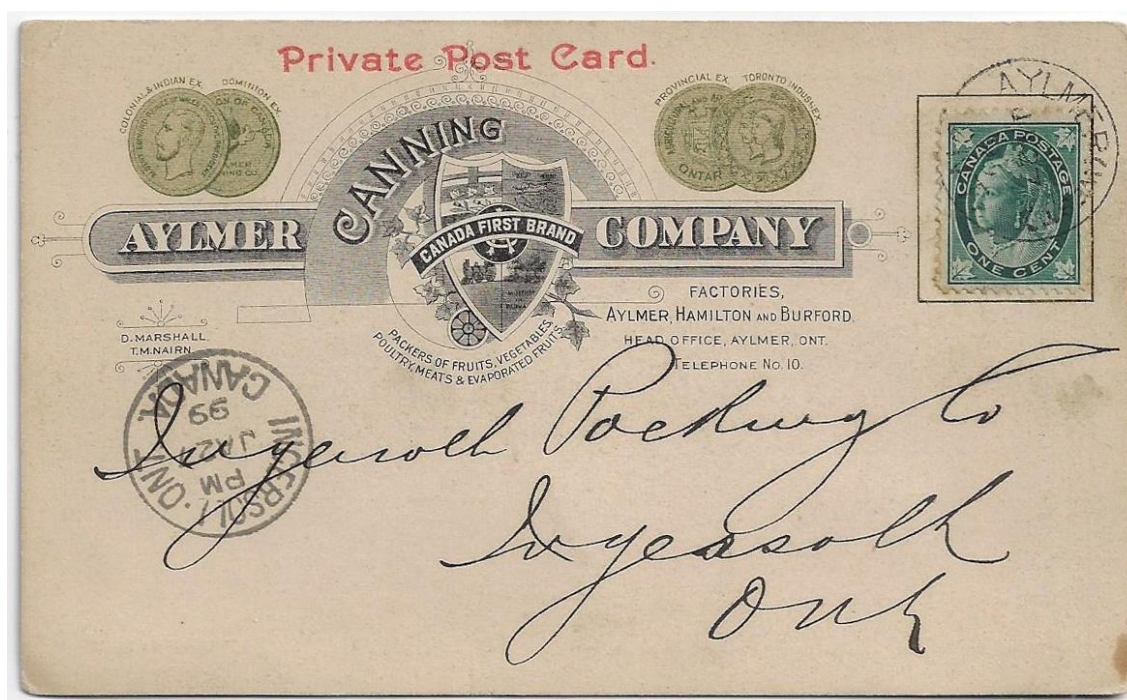 Private Post Card.
COLONIAL & INDIAN EX. DOMINION EX.
PROVINCIAL EX. TORONTO INDUS. EX.
AYLMER CANNING COMPANY
CANADA FIRST BRAND
PACKERS OF FRUITS, VEGETABLES,
POULTRY, MEATS & EVAPORATED FRUITS.
D. MARSHALL.
T.M. NAIRN.
FACTORIES,
AYLMER, HAMILTON AND BURFORD.
HEAD OFFICE, AYLMER, ONT.
TELEPHONE No. 10.
ONTAR
AYLMER
CANADA POSTAGE
ONE CENT
INGERSOLL · ONT.
PM
JA 2
99
CANADA
Ingersoll Packing Co
Ingersoll
Ont